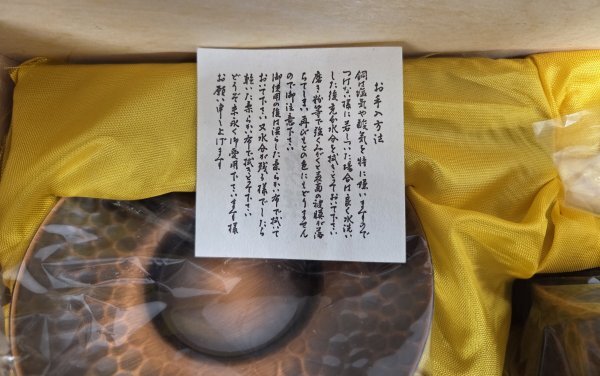 お手入方法
銅は塩気や酸気を特に嫌いますので
つけない様に若しついた場合は良く水洗い
した後充分水分を拭きとっておいて下さい
磨き粉等で強くみがくと表面の被膜が落
ちてしまい再びもとの色にもどりません
ので御注意下さい
御使用の後は湿らした柔らかい布で拭いて
おいて下さい又水分が残る様でしたら
乾いた柔らかい布で拭きとって下さい
どうぞ末永く御愛用下さいます様
お願い申し上げます